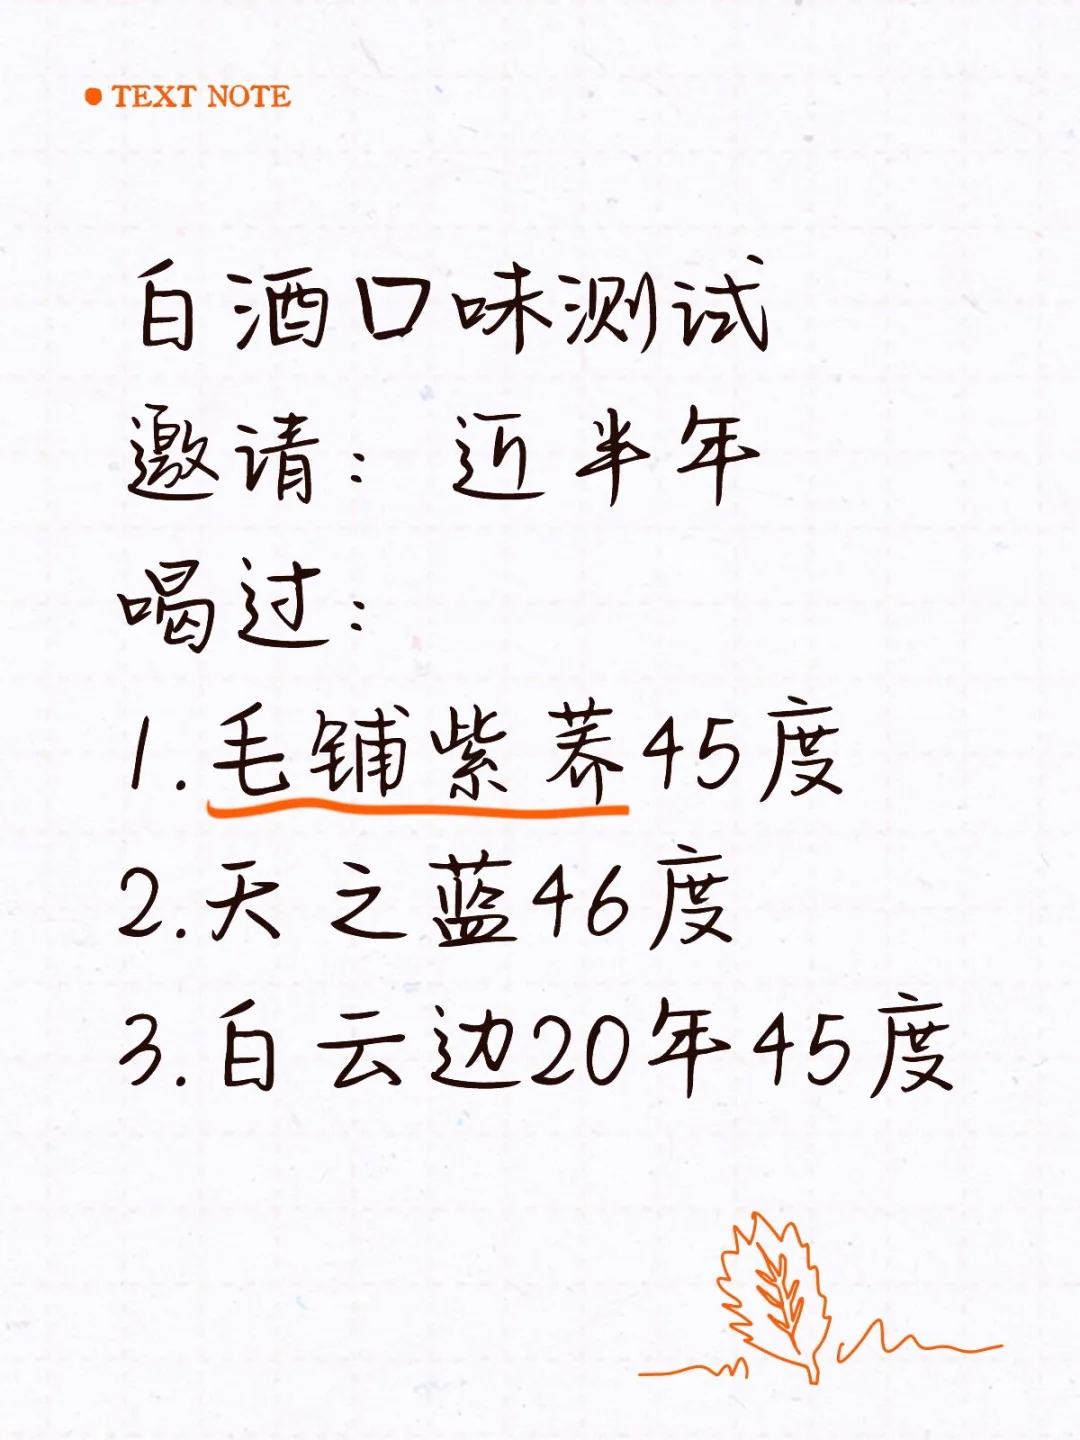 TEXT NOTE
白酒口味测试
邀请：近半年
喝过：
1.毛铺紫荞45度
2.天之蓝46度
3.白云边20年45度